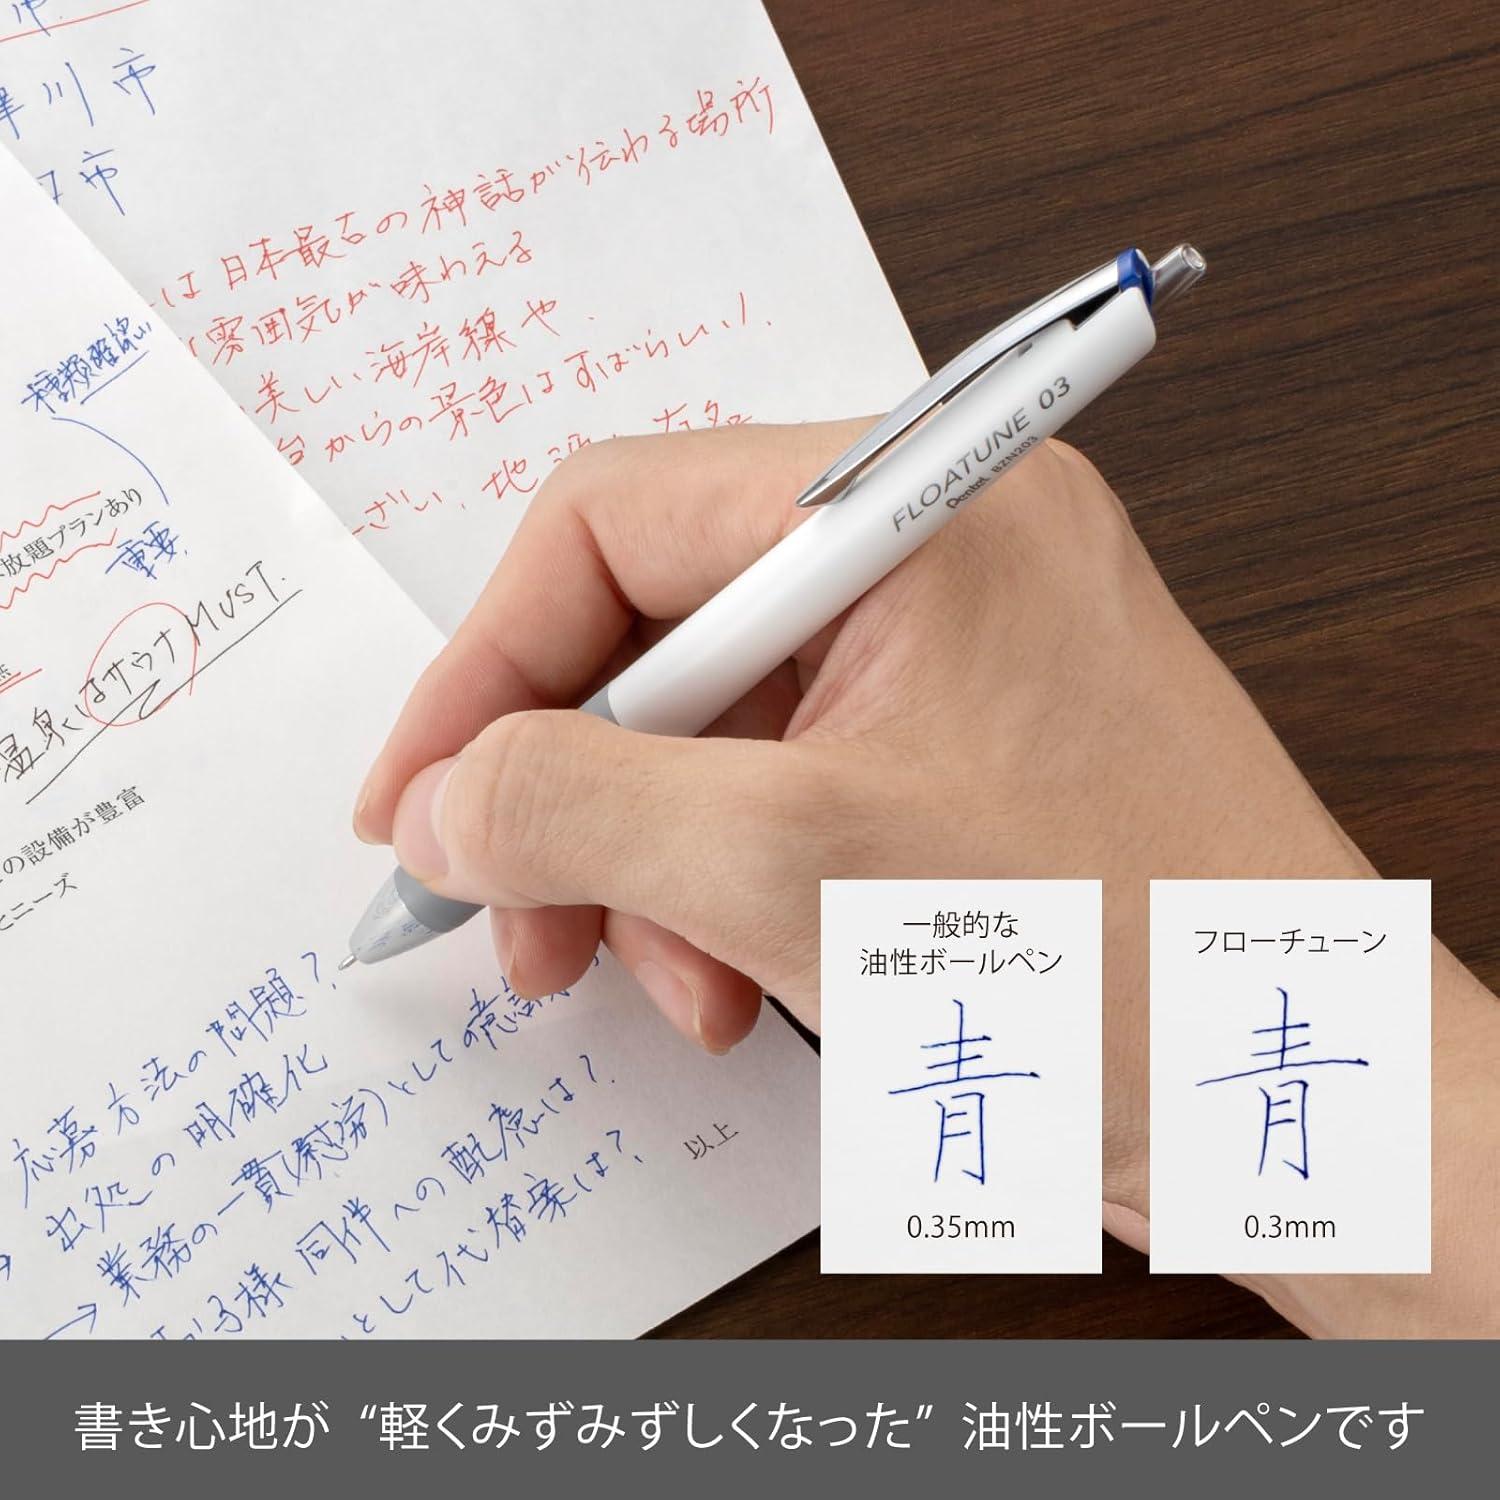 澤川市
市
は日本最古の神話が伝わる場所
雰囲気が味わえる
美しい海岸線や、
台からの景色はすばらしい、
種類確認
放題プランあり
重要
温泉にはサウナMUST.
の設備が豊富
とニーズ
FLOATUNE 03
Pentel BZN203
応募方法の問題?
出処の明確化
→業務の一貫(慰労)としての意識
様同伴への配慮は?
として代替案は?
以上
一般的な
油性ボールペン
青
0.35mm
フローチューン
青
0.3mm
書き心地が“軽くみずみずしくなった”油性ボールペンです